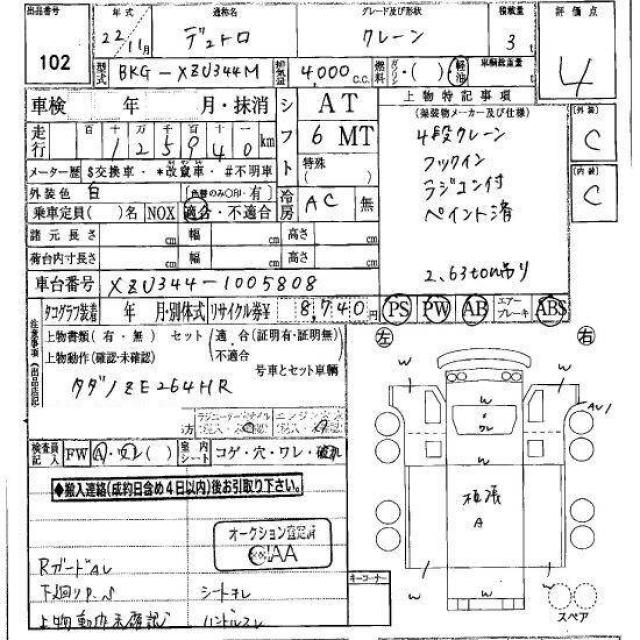 出品番号
102
年式
22/11月
通称名
デュトロ
グレード及び形状
クレーン
積載量
3 t
評価点
4
型式
BKG-XZU344M
排気量
4,000 c.c.
燃料
ガソリン・( ) 軽油
車輌総重量
t
車検 年 月・抹消
シフト
AT
6 MT
特殊
( )
走行
百 十 万 千 百 十 一
125940 km
メーター歴 $交換車・*改竄車・#不明車
外装色 白
(色替のみ○印・有)
乗車定員( )名
NOX
適合・不適合
冷房
AC
無
諸元長さ cm 幅 cm 高さ cm
荷台内寸長さ cm 幅 cm 高さ cm
車台番号
XZU344-1005808
上物特記事項
(架装物メーカー及び仕様)
4段クレーン
フックイン
ラジコン付
ペイント済
2.63ton吊り
[外装]
C
[内装]
C
タコグラフ装着 年 月・別体式
リサイクル券¥
8,740円
PS
PW
AB
エアーブレーキ
ABS
注意事項(出品店記
上物書類(有・無) セット
適合(証明有・証明無)
不適合
上物動作(確認・未確認)
号車とセット車輌
タダノZE264HR
検査員記入
FW
A・ワレ( )
室内シート
コゲ・穴・ワレ・破れ
◆搬入連絡(成約日含め4日以内)後お引取り下さい。
オークション鑑定済
AA
RガードAU
下廻りP.S
シートキレ
上物動作未確認
ハンドルスレ
キーコーナー
左
右
W
W
W
ワレ
AU1
W
板張
A
W
W
W
スペア